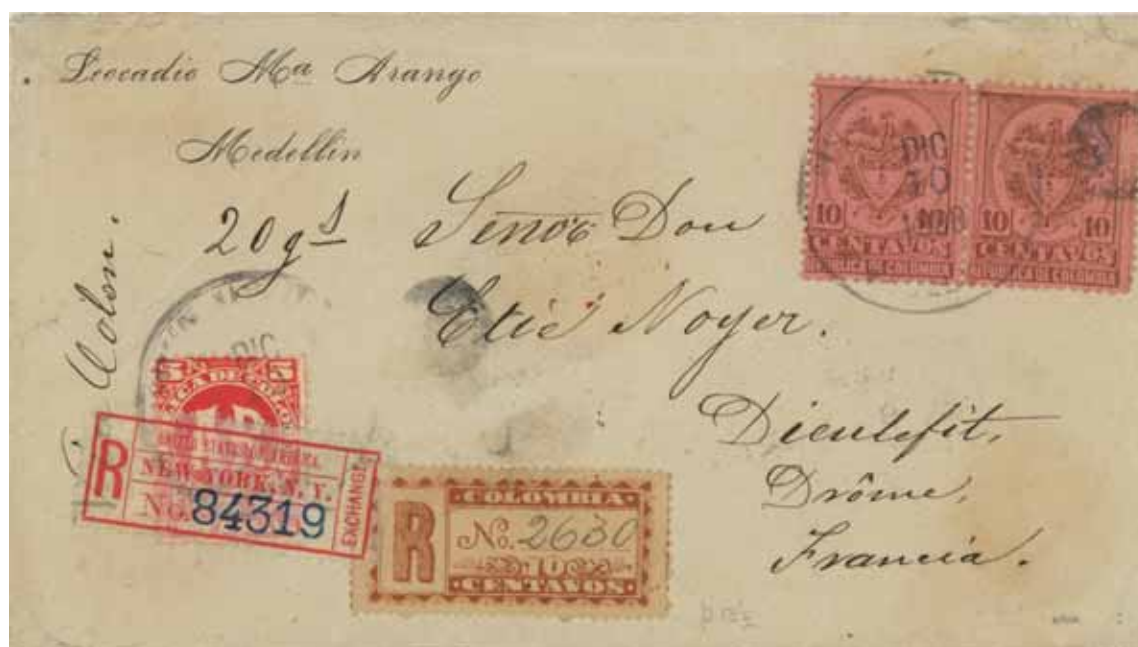 Leocadio Mª Arango
Medellin
20 gs
Señor Don
Etié Noyer.
Dieulefit,
Drôme,
Francia.
Colon.
10 10
CENTAVOS
REPUBLICA DE COLOMBIA
10 10
CENTAVOS
REPUBLICA DE COLOMBIA
DIC
30
DIC
5 5
R
NEW YORK, N. Y.
No. 84319
EXCHANGE
COLOMBIA
R
No. 2630
10
CENTAVOS